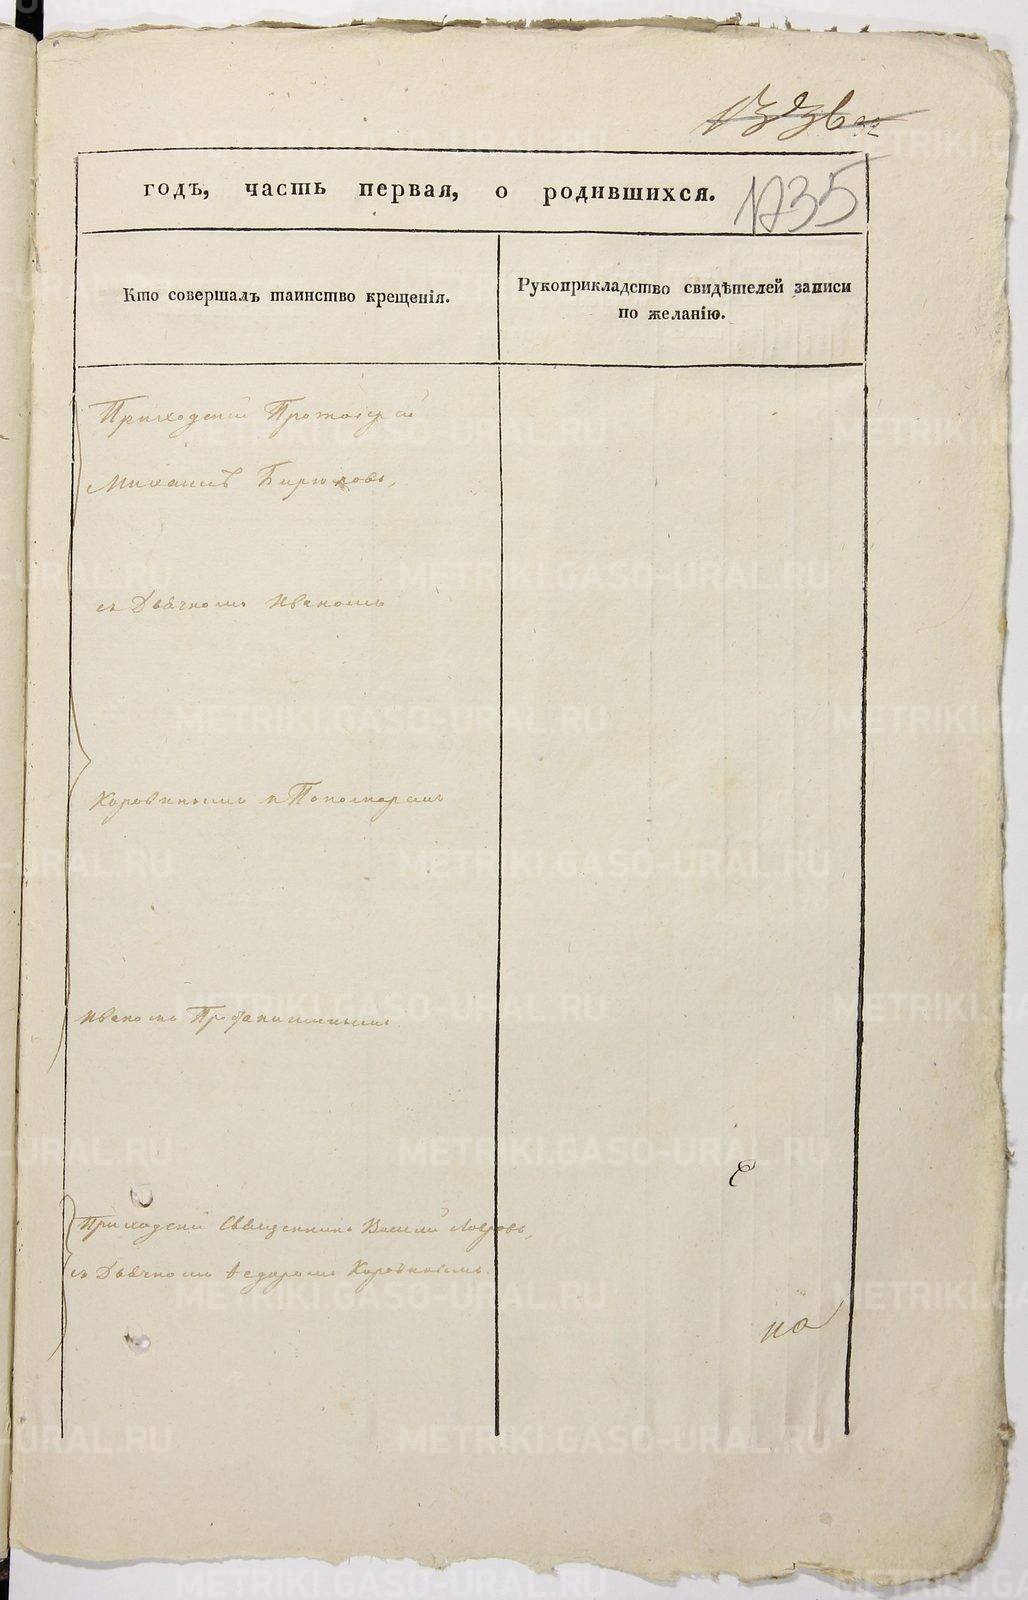 1735
годъ, часть первая, о родившихся.
Кто совершалъ таинство крещенія.
Рукоприкладство свидѣтелей записи
по желанію.
Приходскій Протоіерей
Михаилъ Бирюковъ,
съ Дьячкомъ Иваномъ
Коровинымъ и Пономаремъ
Иваномъ
Приходскій Священникъ Василій
съ Дьячкомъ Ѳедоромъ Коровинымъ.
на
METRIKI.GASO-URAL.RU